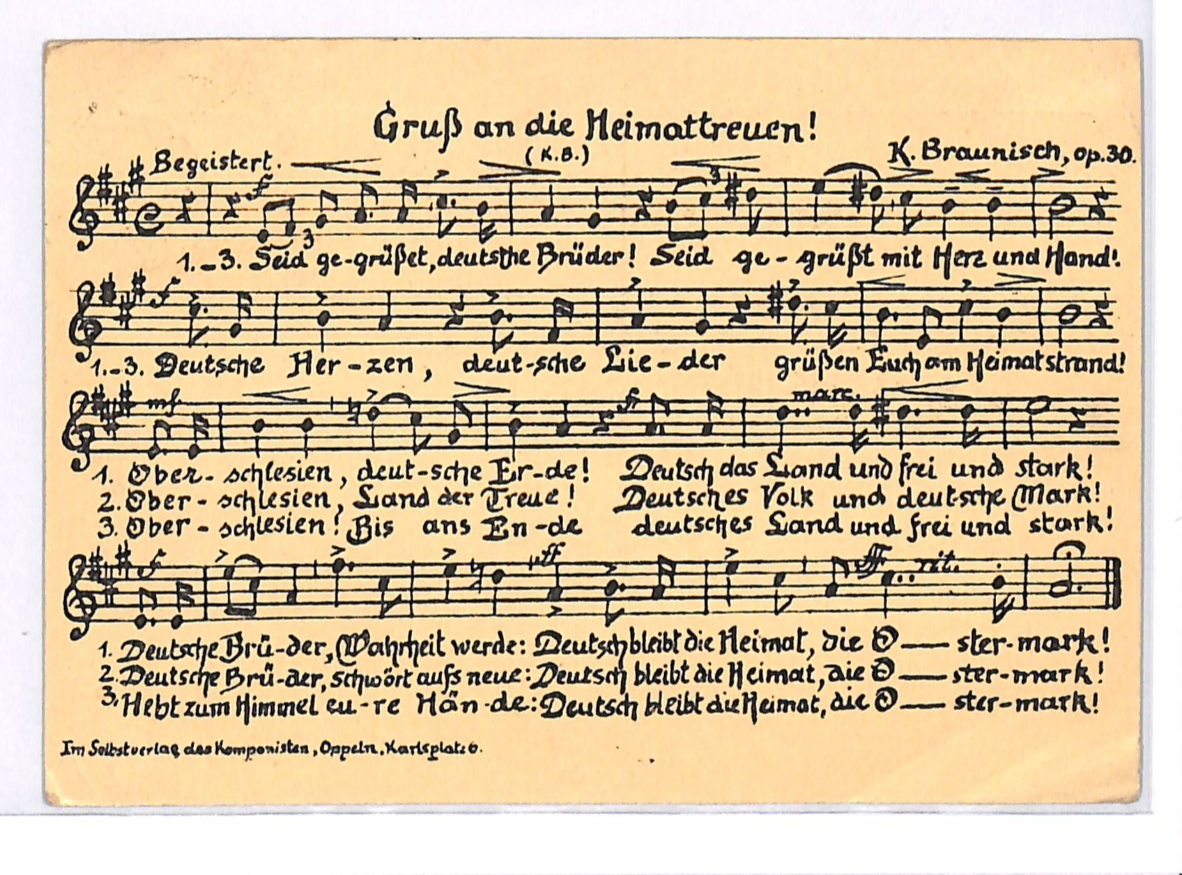 Gruß an die Heimattreuen!
(K.B.)
Begeistert.
K. Braunisch, op.30.
f
3
3
1.-3. Seid ge-grüßet, deutsche Brüder! Seid ge - grüßt mit Herz und Hand!
f
1.-3. Deutsche Her-zen, deut-sche Lie-der grüßen Euch am Heimatstrand!
mf. f marc.
1. Ober- schlesien, deut-sche Er-de! Deutsch das Land und frei und stark!
2. Ober- schlesien, Land der Treue! Deutsches Volk und deutsche Mark!
3. Ober- schlesien! Bis ans En-de deutsches Land und frei und stark!
f ff fff rit.
1. Deutsche Brü-der, Wahrheit werde: Deutsch bleibt die Heimat, die O — ster-mark!
2. Deutsche Brü-der, schwört aufs neue: Deutsch bleibt die Heimat, die O — ster-mark!
3. Hebt zum Himmel eu-re Hän-de: Deutsch bleibt die Heimat, die O — ster-mark!
Im Selbstverlag des Komponisten, Oppeln, Karlsplatz 6.